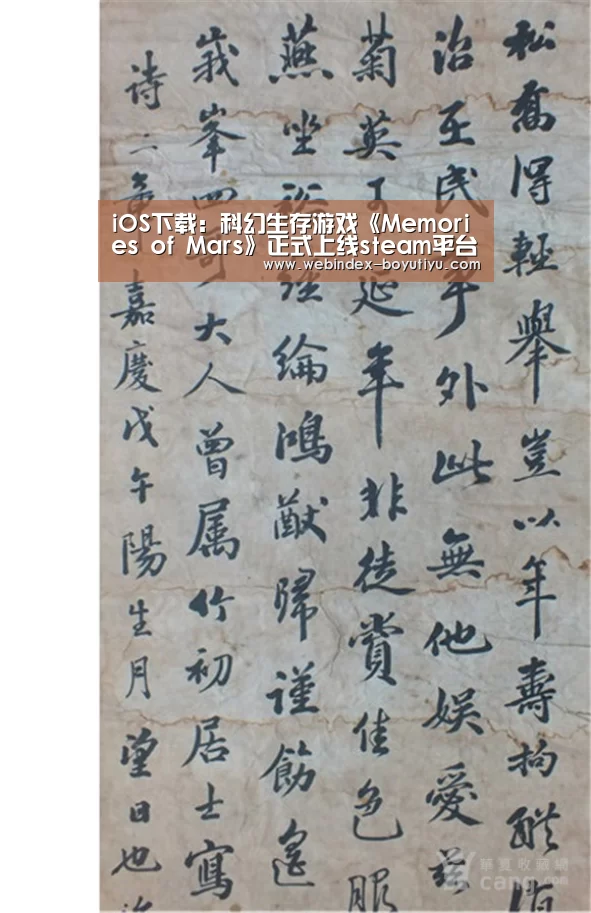 iOS下载：科幻生存游戏《Memori
es of Mars》正式上线steam平台
www.webindex-boyutiyu.com
松喬得輕舉豈以年壽拘
治至民乎外此無他娛愛茲
菊英可延年非徒賞佳色服
燕坐裕經綸鴻猷歸謹飭
峩峯四大人曾属竹初居士寫
詩二章嘉慶戊午陽生月望日也
華夏收藏網
cang.com